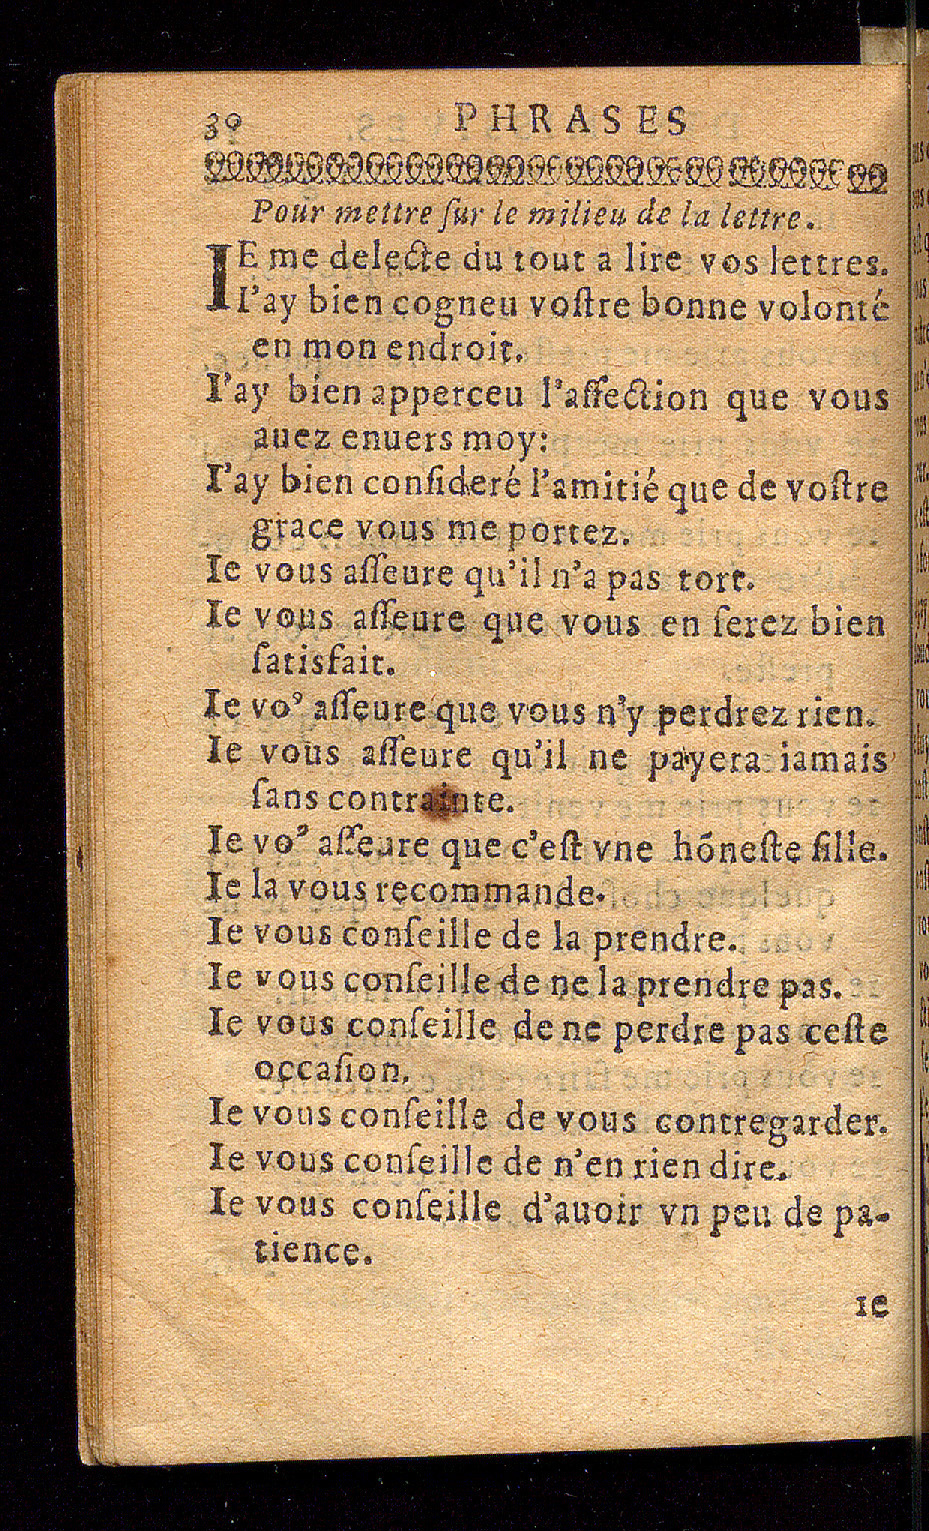 30 PHRASES
Pour mettre ſur le milieu de la lettre.
IE me delecte du tout a lire vos lettres.
I'ay bien cogneu voſtre bonne volonté
en mon endroit.
I'ay bien apperceu l'affection que vous
auez enuers moy:
I'ay bien conſideré l'amitié que de voſtre
grace vous me portez.
Ie vous aſſeure qu'il n'a pas tort.
Ie vous aſſeure que vous en ſerez bien
ſatisfait.
Ie vo' aſſeure que vous n'y perdrez rien.
Ie vous aſſeure qu'il ne payera iamais
ſans contrainte.
Ie vo' aſſeure que c'eſt vne hōneſte fille.
Ie la vous recommande.
Ie vous conſeille de la prendre.
Ie vous conſeille de ne la prendre pas.
Ie vous conſeille de ne perdre pas ceſte
occaſion.
Ie vous conſeille de vous contregarder.
Ie vous conſeille de n'en rien dire.
Ie vous conſeille d'auoir vn peu de pa-
tience.
Ie